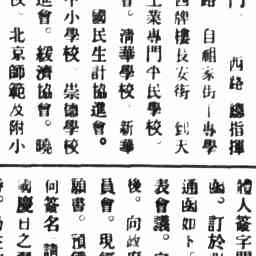 門　　西路　總指揮
路　自祖家街――專學
西牌樓長安街　到天
工業專門平民學校
會。清華學校　新華
國民生計協進會。
中小學校　崇德學校
進會。緩濟協會。曉
校。北京師範及附小
體人簽字間
函。訂於
通函如下
表會議。
後。向政府
員會。現經
願書。預備
何簽名　請
國慶日之